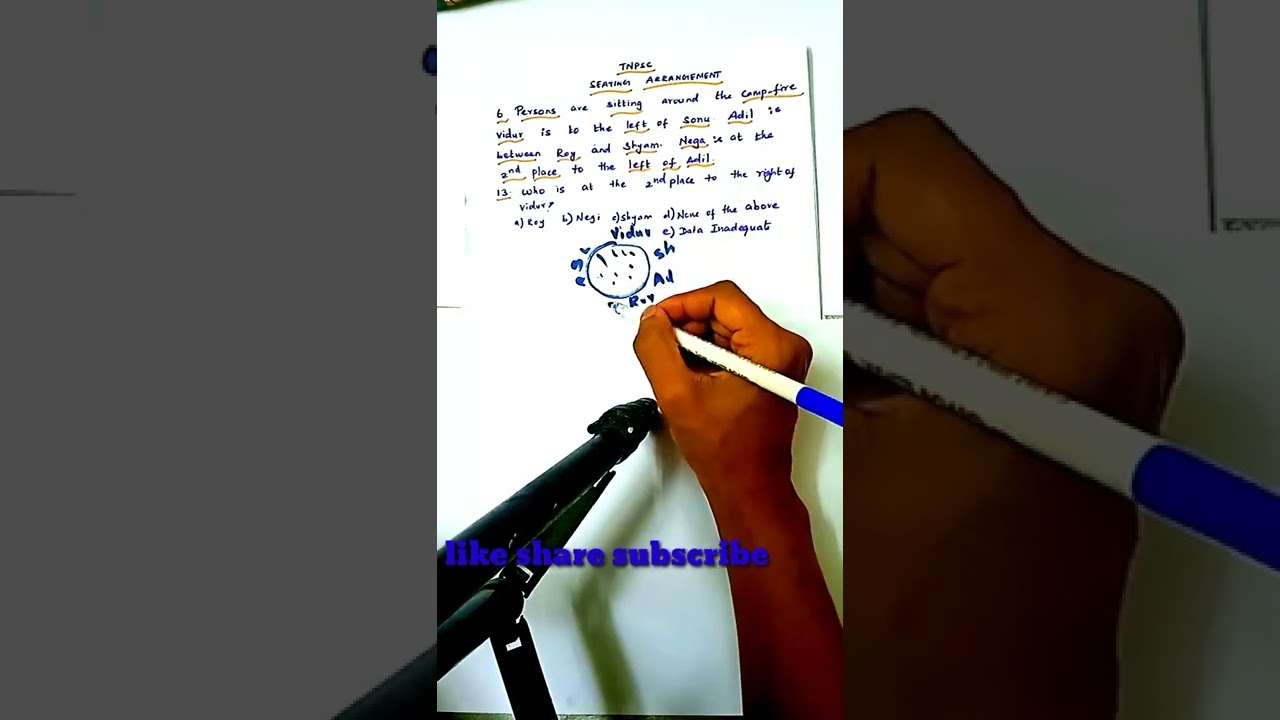 TNPSC
SEATING ARRANGEMENT
6 Persons are sitting around the camp-fire
Vidur is to the left of sonu. Adil is
between Roy and Shyam. Nega is at the
2nd place to the left of Adil.
13. Who is at the 2nd place to the right of
Vidur?
a) Roy b) Negi c) Shyam d) None of the above
e) Data Inadequate
Vidur
Sh
Ad
Roy
like share subscribe